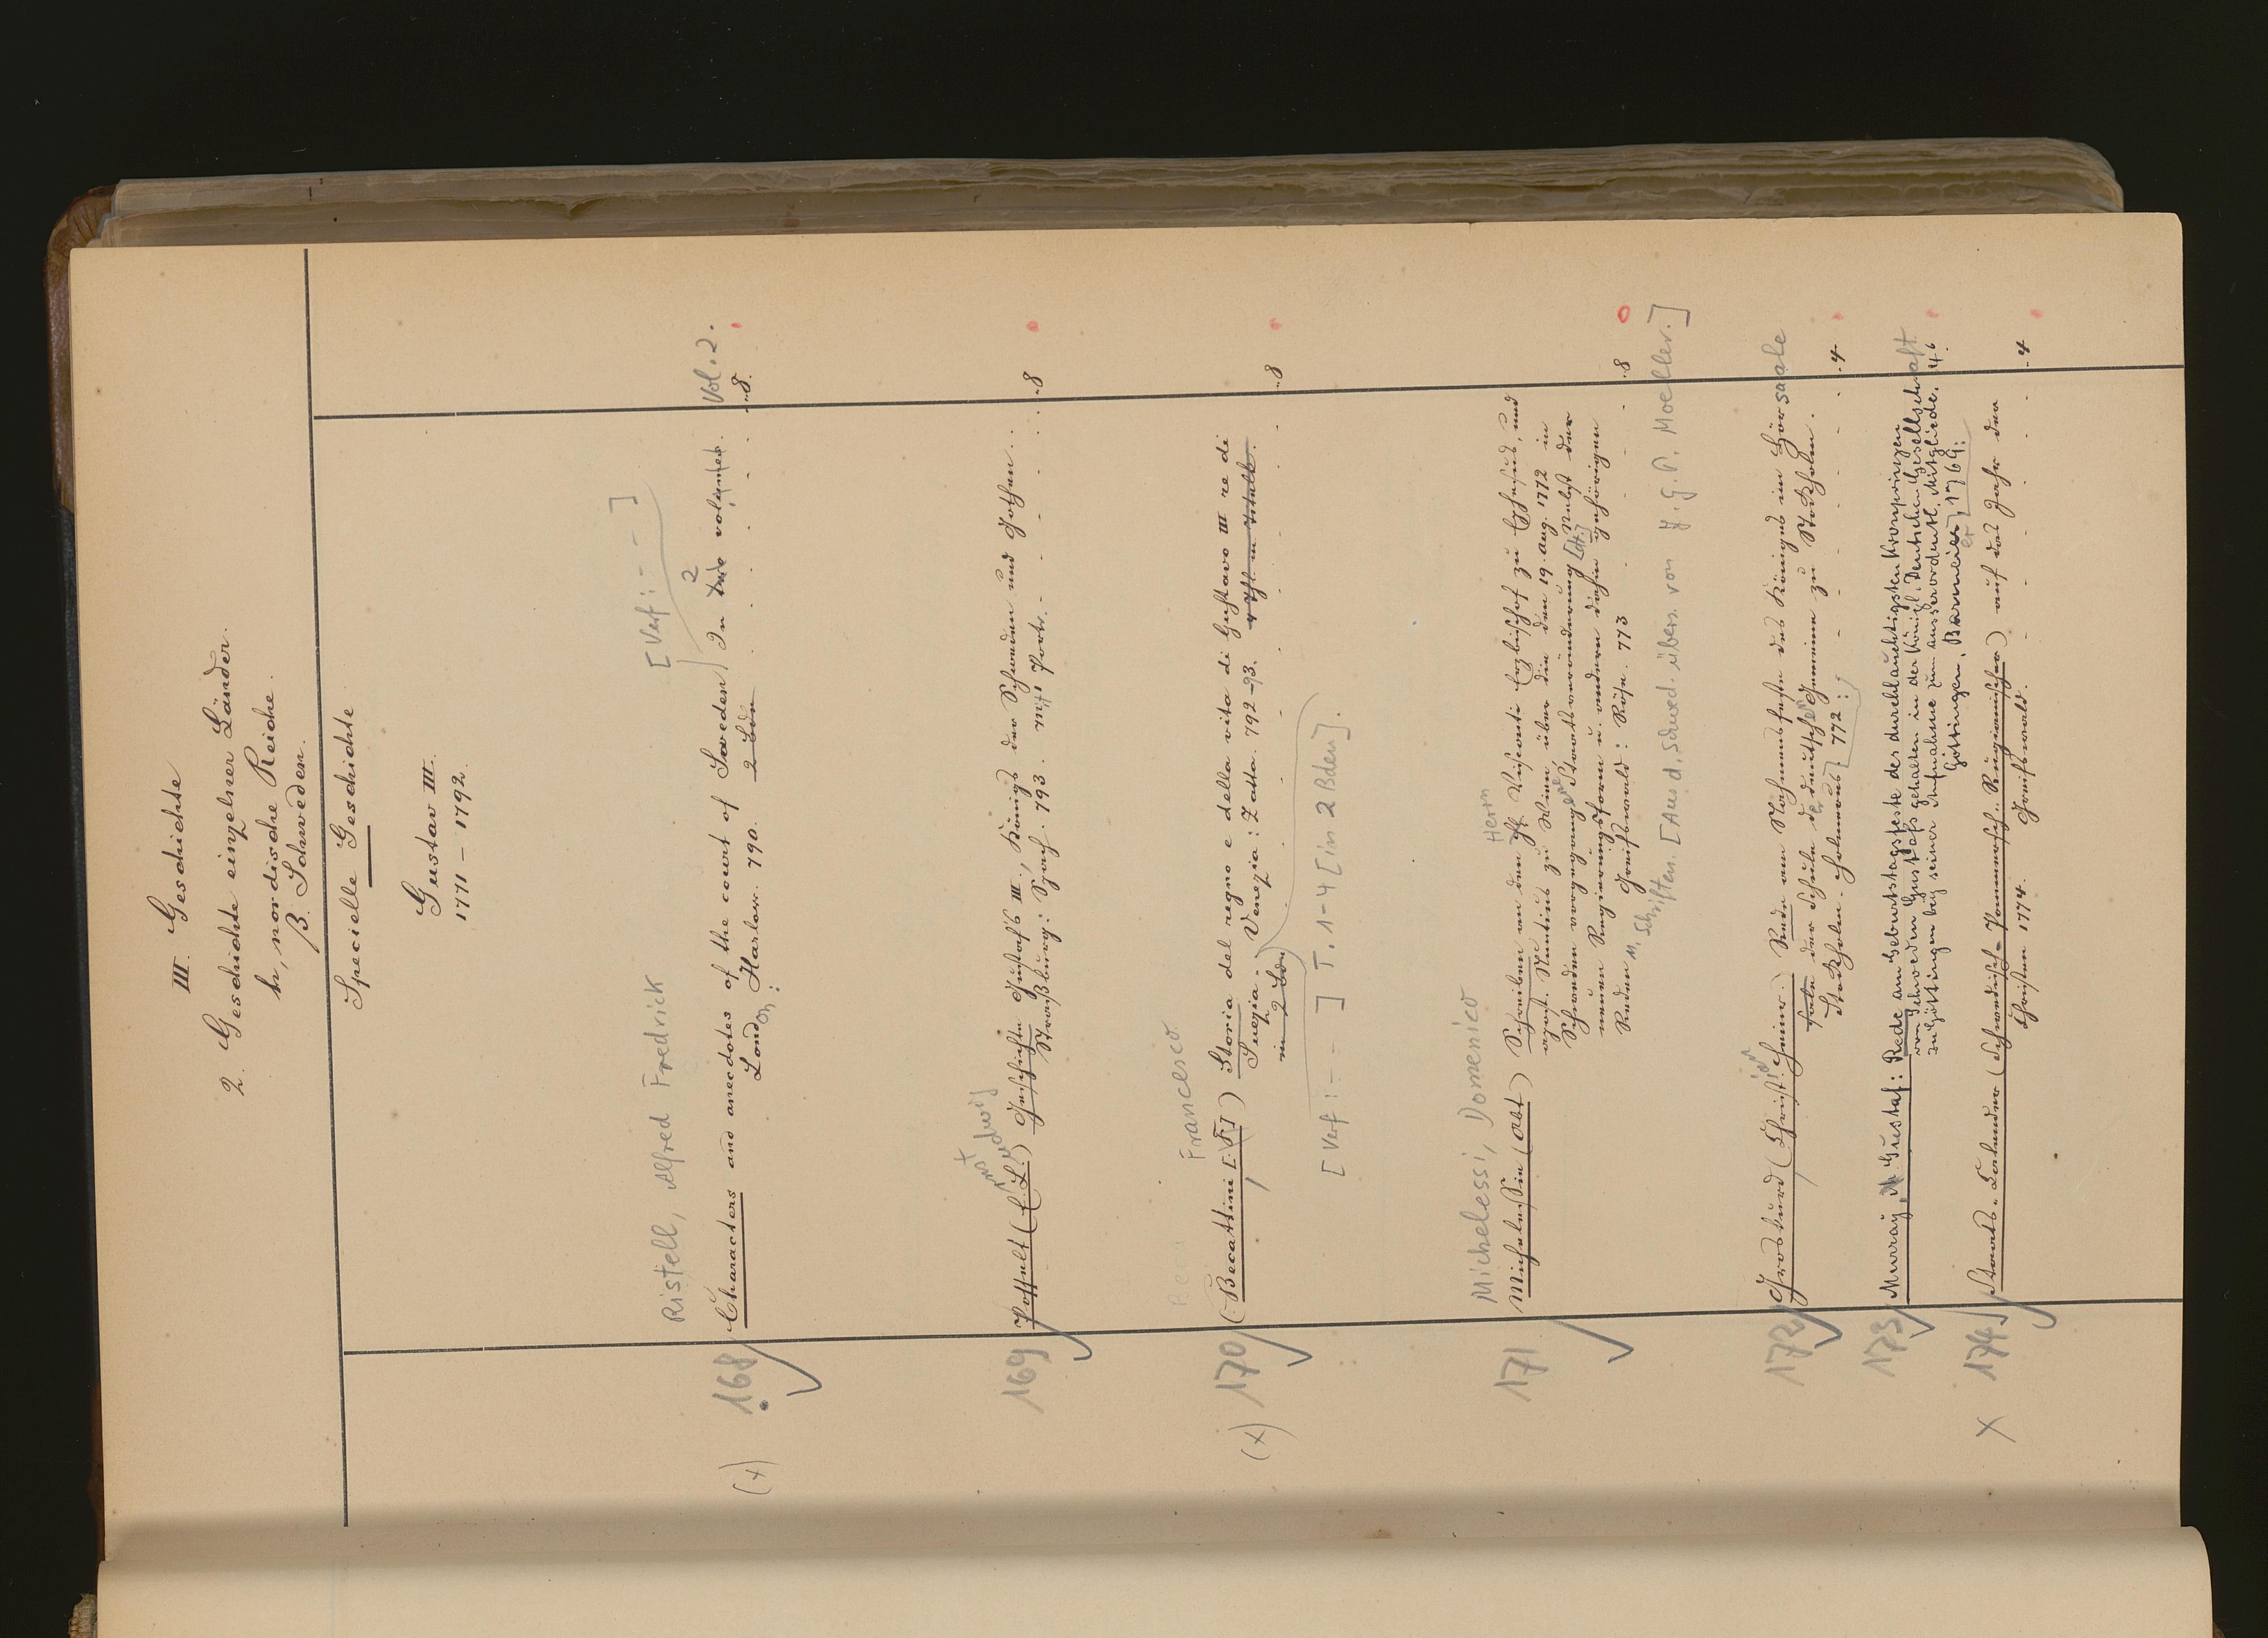 III. Geschichte
2. Geschichte einzelner Länder.
h, nordische Reiche.
β. Schweden.
Specielle Geschichte
Gustav III.
1771 – 1792.
Ristell, Alfred Fredrick [Verf: - - ]
(x) 168 Characters and anecdotes of the court of Sweden In two 2 volumes. Vol. 2.
London: Harlow. 790. 2 Bde 8.
169 Posselt (E. L.) Geschichte Gustafs III., Königs der Schweden und Gothen
nst udwig
Straßburg: 793. mit Portr. 8
Francesco
(x) 170 (Becattini [F]) Storia del regno e della vita di Gustavo III re di
Suezia. Venezia: Zatta. 792-93. 8
in 2 Bdn
[Verf: - - ] T. 1-4 [in 2 Bden].
Michelessi, Domenico
Herrn
171 Michelessie (Abt) Schreiben an den H. Visconti Erzbischof zu Ephesus, und
apost. Nuntius zu Wien, über die den 19. Aug. 1772 in
Schweden vorgegangene Staatsveränderung [dt.] Nebst der
neuen Regierungsform u. andern dahin gehörigen
Reden u. Schriften. Greifswald: Röse. 773 8
[Aus d. Schwed. übers. von J. G. P. Moeller.]
172 Grosskurd (Christian Heinr.) Rede am Nahmensfeste des Königes im Hörsaale
der Schule der deutschen Gemeine zu Stockholm.
Stockholm. 772: 4
173 Murray, Gustaf: Rede am Geburtstagsfeste des durchlauchtigsten Kronprinzen
von Schweden Gustafs gehalten in der Königl. Deutschen Gesellschaft
zu Göttingen bey seiner Aufnahme zum ausserordentl. Mitgliede.
Göttingen, Barmeier, 1769: 4°
X 174 Staats-Kalender (Schwedisch-Pommersch-Rügianischer) auf das Jahr der
Christen 1774. Greifswald. 4